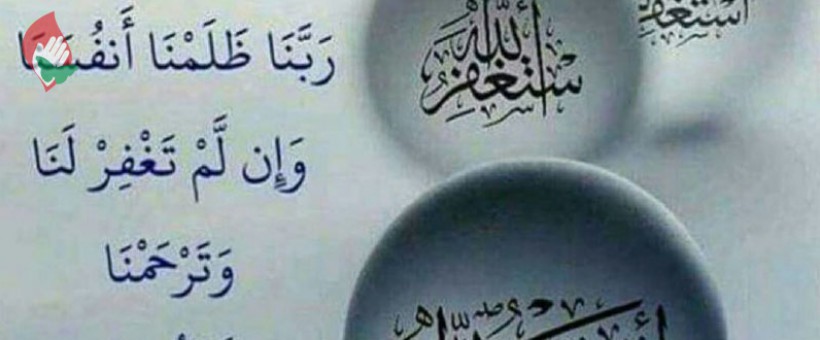 رَبَّنَا ظَلَمْنَا أَنفُسَنَا
وَإِن لَّمْ تَغْفِرْ لَنَا
وَتَرْحَمْنَا
أستغفر الله
أستغفر